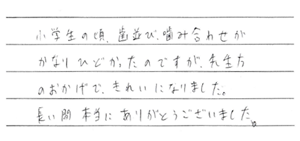 小学生の頃、歯並び、噛み合わせが
かなりひどかったのですが、先生方
のおかげで、きれいになりました。
長い間本当にありがとうございました。